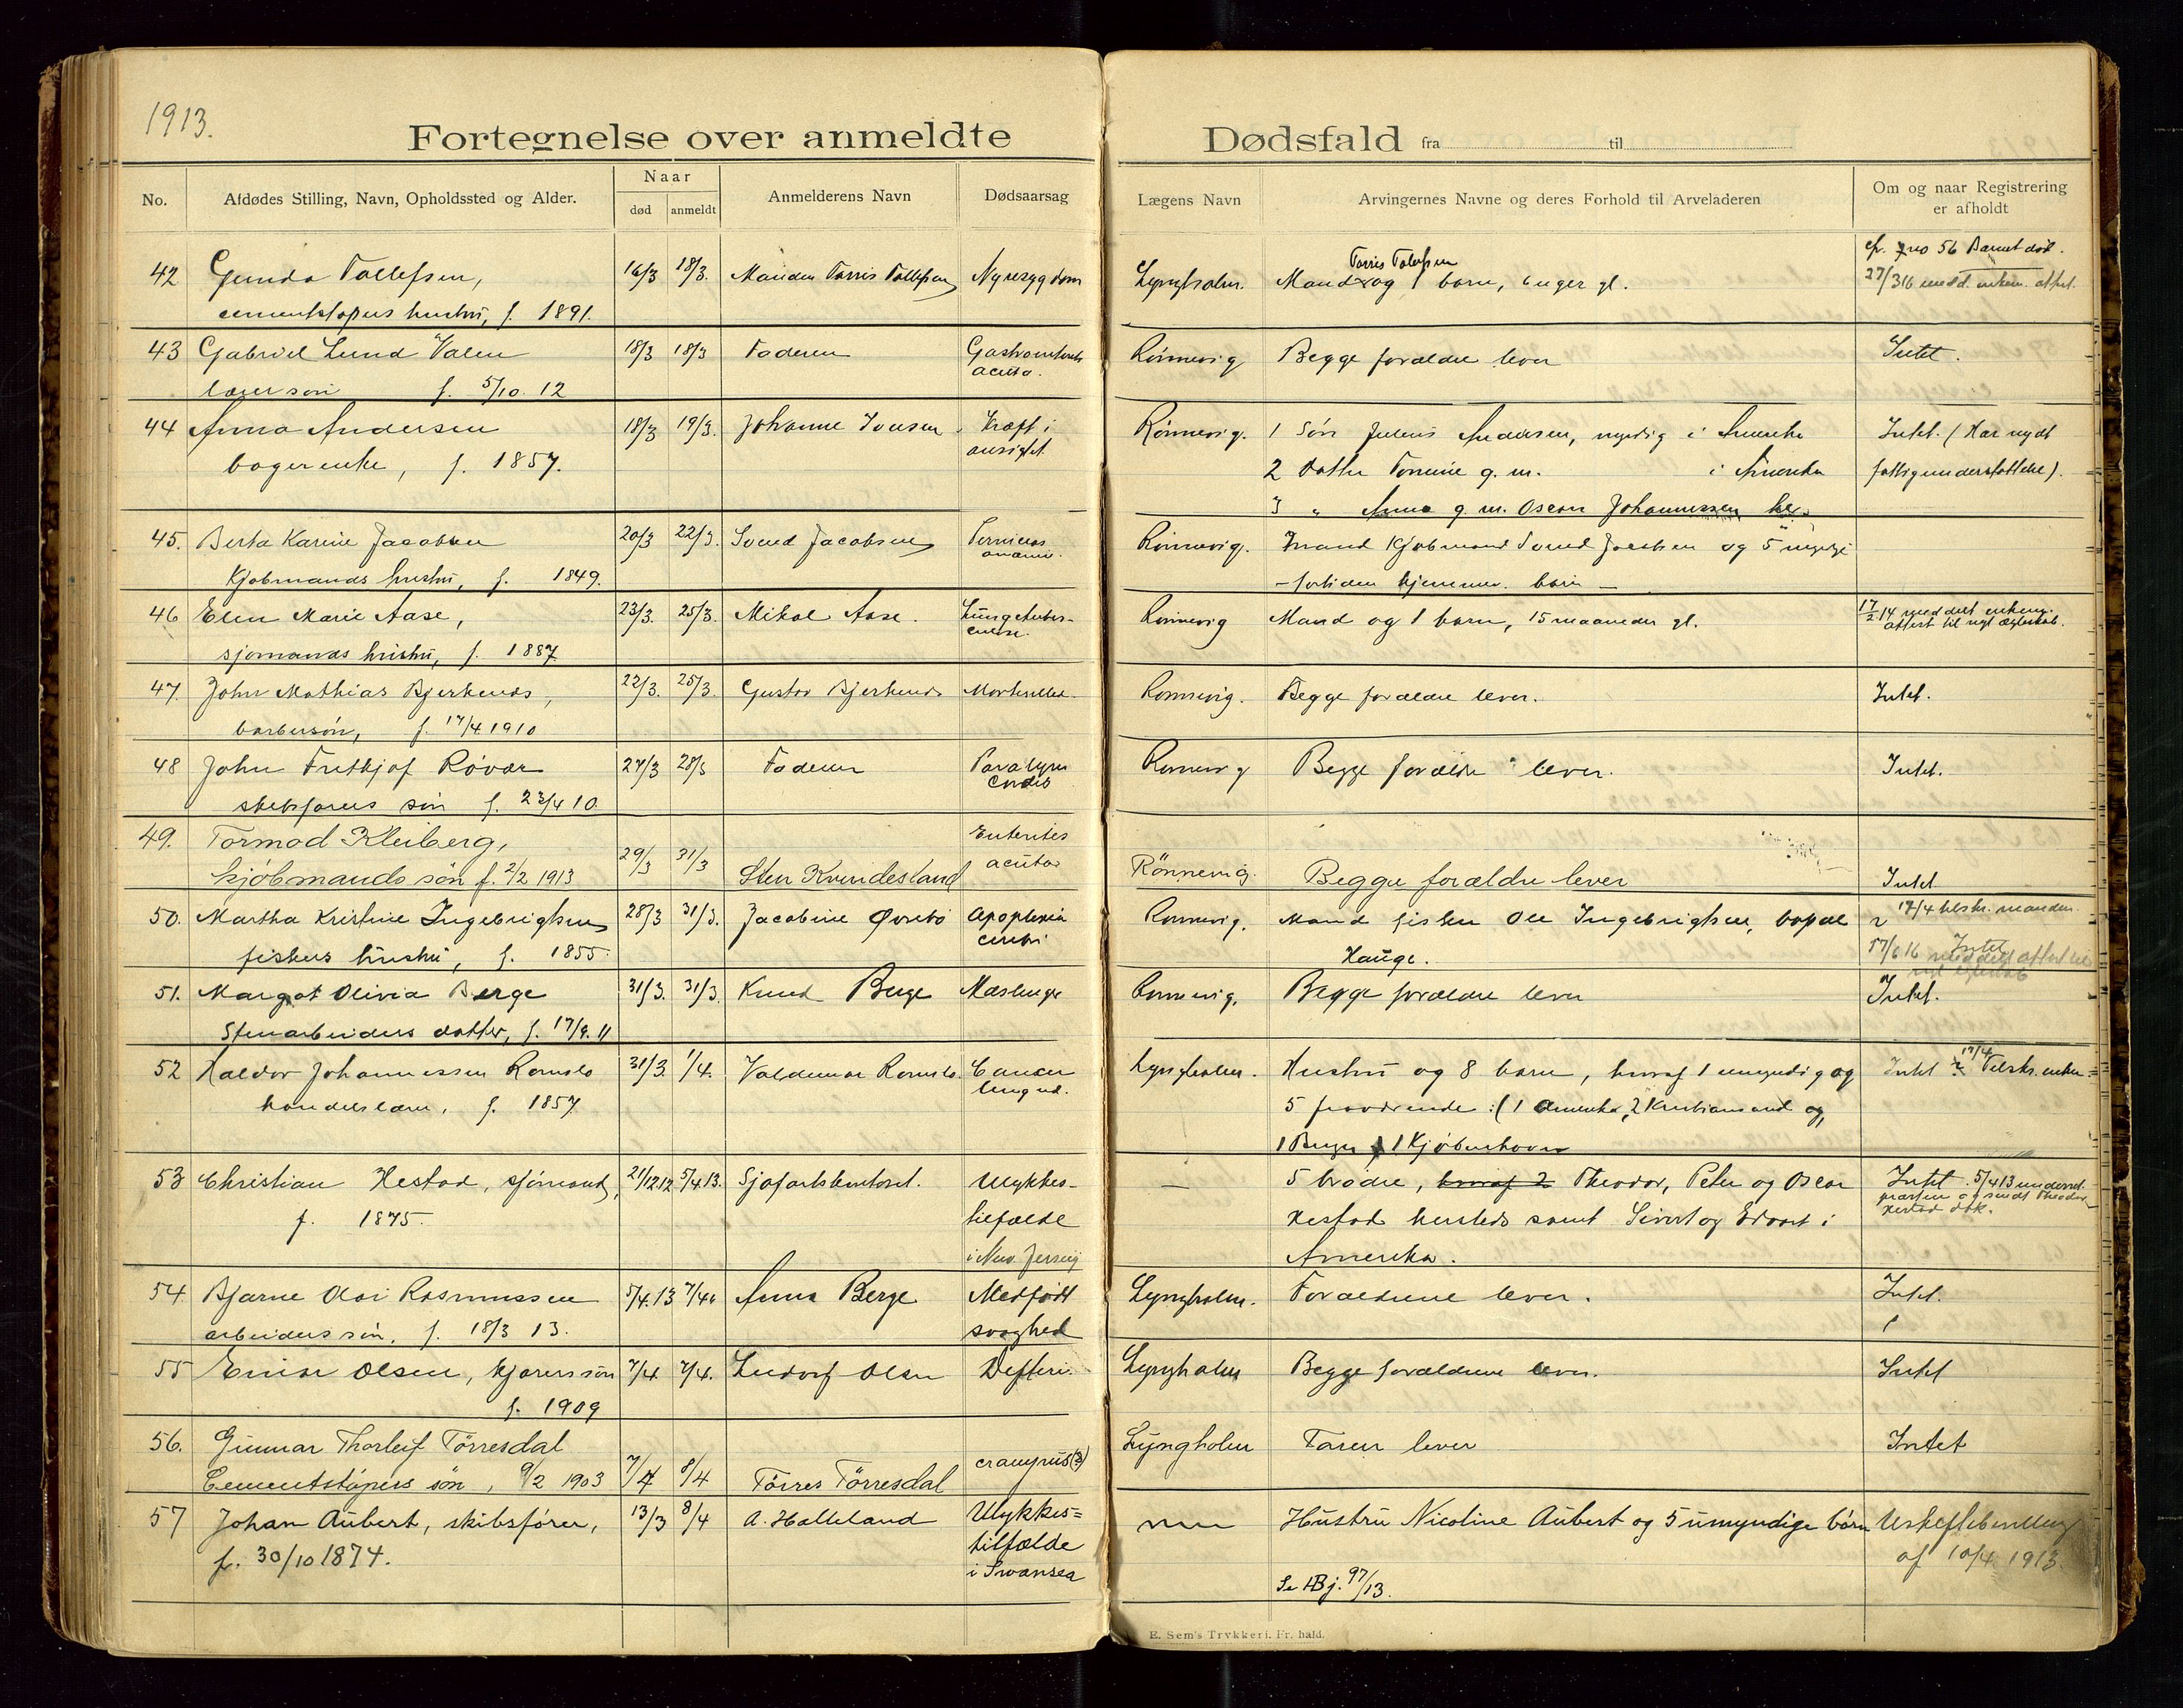 1913.
Fortegnelse over anmeldte Dødsfald fra til
No. Afdødes Stilling, Navn, Opholdssted og Alder. Naar død anmeldt Anmelderens Navn Dødsaarsag Lægens Navn Arvingernes Navne og deres Forhold til Arveladeren Om og naar Registrering er afholdt
cfr. no 56 Barnet død.
Torris Tollefsen
42 Gunda Tollefsen, 16/3 18/3. Manden Torris Tollefsen Nyresygdom Lyngholm. Mand og 1 barn, 6 uger gl. 27/3 16 medd. enkem. attest.
cementstøpers hustru, f. 1891.
43 Gabriel Lund Valen 18/3 18/3 Faderen Rønnevig Begge forældre lever Intet.
acuta.
f. 5/10. 12
44 Anna Andersen 18/3 19/3. Johanne Iversen Kræft i Rønnevig. 1 Søn Julius Andersen, myndig i Amerika Intet. (Har nydt
bagerenke, f. 1857. ansigtet 2 Datter g. m. i Amerika fattigunderstøttelse).
3 " Anna g. m. Oscar Johannessen her.
45. Berta Karine Jacobsen 20/3 22/3. Svend Jacobsen Rønnevig. Mand Kjøbmand Svend Jacobsen og 5 myndige
Kjøbmands hustru, f. 1849. — fortiden hjemmev. børn —
46 Elen Marie Aase, 23/3. 25/3. Mikal Aase. Lungetuber- Rønnevig Mand og 1 barn, 15 maaneder gl. 17/2 14 meddelt enkem.
culose. attest til nyt ægteskab.
sjømands hustru, f. 1887
47. John Mathias Bjerkenes, 22/3. 25/3. Gustav Bjerkenes Rønnevig. Begge forældre lever. Intet.
barbersøn, f. 17/4 1910
48 John Fritkjof Røvær 27/3 28/3 Faderen Paralysis Rønnevig Begge forældre lever. Intet.
cordis
skibsførers søn f. 23/4 10.
49. Tormod Kleiberg, Enterites
acuta
kjøbmands søn f. 2/2 1913 29/3 31/3 Sten Kvindesland Rönnevig. Begge forældre lever Intet
50. Martha Kristine Ingebrigtsen 28/3 31/3. Jacobine Øvrebø Apoplexia Rønnevig. Mand fisker Ole Ingebrigtsen, bopæl 17/4 tilskr. manden.
cerebri
fiskers hustru, f. 1855. Hauge. Intet
17/6 16 meddelt attest til
nyt egteskab
51. Margot Olivia Berge 31/3. 31/3. Knud Berge Mæslinger Rønnevig. Begge forældre lever Intet.
Stenarbeiders datter, f. 17/9. 11
52 Haldor Johannessen Romslo 31/3. 1/4. Valdemar Romslo. Cancer Lyngholm. Hustru og 8 barn, hvoraf 1 umyndig og Intet 17/4 Tilskr. enken
handelslærer, f. 1857 5 fraværende: (1 Amerika, 2 Kristiansand og,
1 Bergen 1 Kjøbenhavn
53 Christian Hestad, sjømand, 21/12 12 5/4 13. Sjøfartskontoret. Ulykkes- — 5 brødre, hvoraf 2 Theodor, Peter og Oscar Intet. 5/4 13 underret.
f. 1875. tilfælde Hestad hersteds samt Sivert og Edvart i præsten og sendt Theodor
Hestad
i New Jersey Amerika.
54 Bjarne Olai Rasmussen 5/4. 13 7/4. Anna Berge Medfødt Lyngholm. Forældrene lever. Intet.
arbeiders søn, f. 18/3 13. svaghed
55 Einar Olsen, kjørers søn 7/4 7/4. Ludorf Olsen Defteri. Lyngholm Begge forældrene lever. Intet
f. 1909
56. Gunnar Thorleif Törresdal Lyngholm Faren lever Intet
Cementstöpers søn, 9/2 1903 7/4 8/4 Törres Törresdal
57 Johan Aubert, skibsfører, 13/3 8/4 A. Halleland Ulykkes= Hustru Nicoline Aubert og 5 umyndige børn Uskiftebevilling
f. 30/10 1874. tilfælde af 10/4 1913.
i Swansea Se HBj. 97/13.
E. Sem's Trykkeri. Fr.hald.